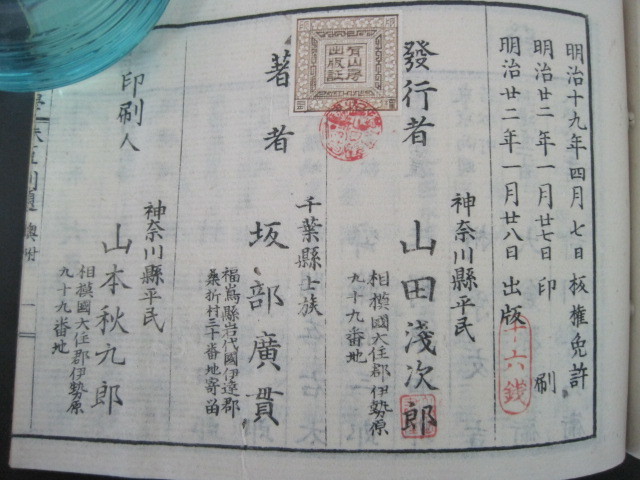 明治十九年四月七日板権免許
明治廿二年一月廿七日印刷
明治廿二年一月廿八日出版
十六銭
發行者
神奈川縣平民
山田淺次郎
相摸國大住郡伊勢原
九十九番地
有山房
出版証
著者
千葉縣士族
坂部廣貫
福嶌縣岩代國伊達郡
桑折村三十番地寄留
印刷人
神奈川縣平民
山本秋九郎
相摸國大住郡伊勢原
九十九番地